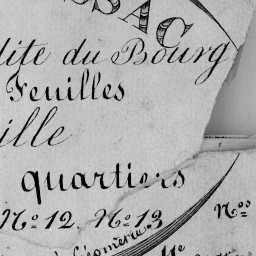 SSAC
dite du Bourg
Feuilles
ille
quartiers
Nº 12. Nº 13
Nos